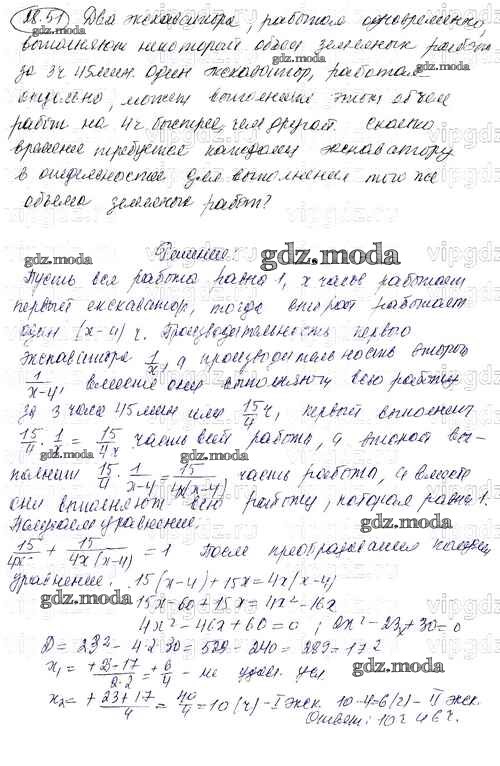 28.51 Два экскаватора, работая одновременно,
выполняют некоторый объем земляных работ
за 3ч 45мин. Один экскаватор, работая
отдельно, может выполнить этот объем
работ на 4ч. быстрее, чем другой. Сколько
времени требуется каждому экскаватору
в отдельности для выполнения того же
объема земляных работ?
Решение:
gdz.moda
Пусть вся работа равна 1, x часов работает
первый экскаватор, тогда второй работает
один (x-4) ч. Производительность первого
экскаватора 1/x, а производительность второго
1/x-4, вместе они выполняют всю работу
за 3 часа 45 мин или 15/4 ч, первый выполнит
15/4 · 1/x = 15/4x часть всей работы, а второй вы-
полнит 15/4 · 1/x-4 = 15/4x(x-4) часть работы, а вместе
они выполняют всю работу, которая равна 1.
Получаем уравнение:
15/4x + 15/4x(x-4) = 1 После преобразования
уравнение: 15(x-4)+15x=4x(x-4)
15x-60+15x=4x²-16x
4x²-46x+60=0; 2x²-23x+30=0
D=23²-4·2·30=529-240=289=17²
x₁=+23-17/2·2=+6/4 - не удов. усл
x₂=+23+17/4=40/4=10(ч)-I экск. 10-4=6(ч)-II экск.
Ответ: 10ч и 6ч.